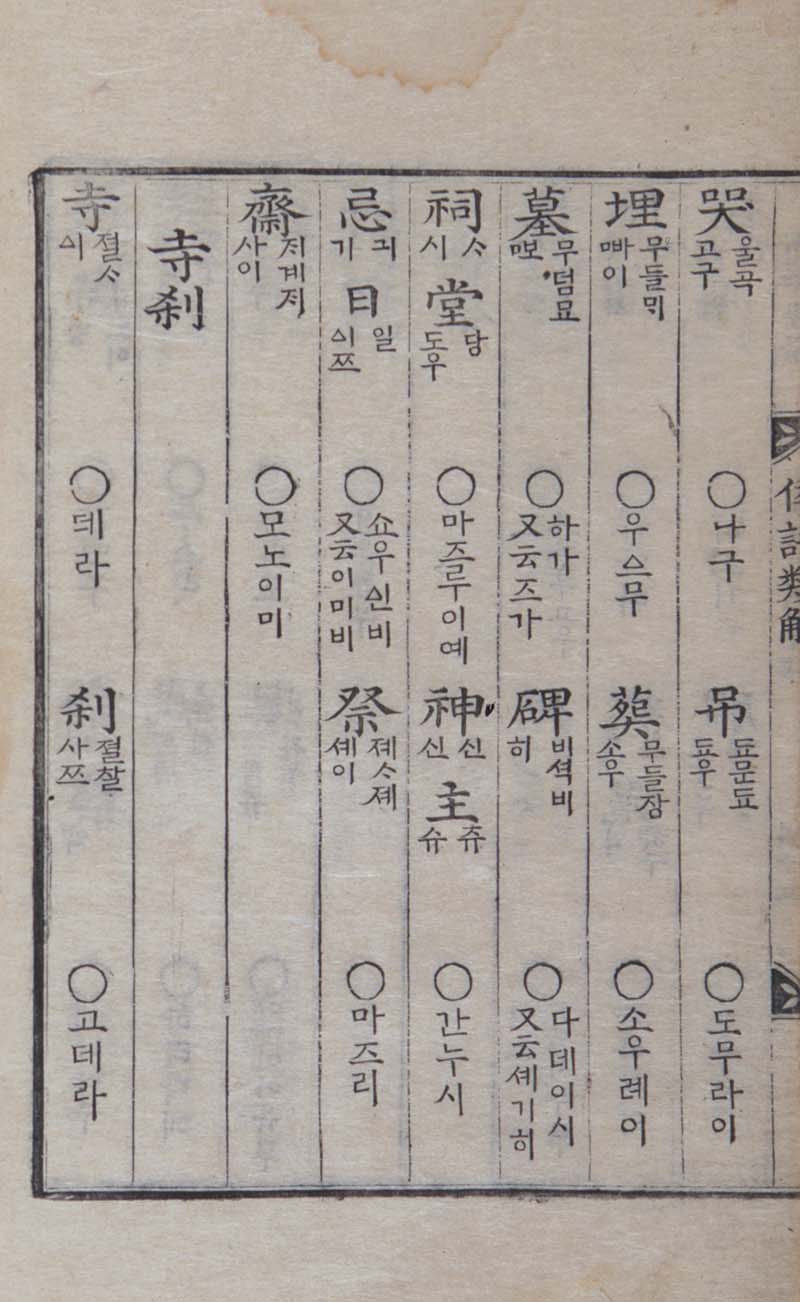 倭語類解
哭 울곡 고구 ○나구 吊 됴문됴 됴우 ○도무라이
埋 무들ᄆᆡ ᄜᅡ이 ○우스무 葬 무들장 소우 ○소우례이
墓 무덤묘 ᄜᅩ ○하가 又云즈가 碑 비셕비 히 ○다데이시 又云셰기히
祠 ᄉᆞ 시 堂 당 도우 ○마즐루이예 神 신 신 主 쥬 슈 ○간누시
忌 긔 기 日 일 시쯔 ○쇼우신비 又云이미비 祭 졔ᄉᆞ졔 셰이 ○마즈리
齋 ᄌᆡ계ᄌᆡ 사이 ○모노이미
寺刹
寺 졀ᄉᆞ 시 ○뎨라 刹 졀찰 사쯔 ○고데라